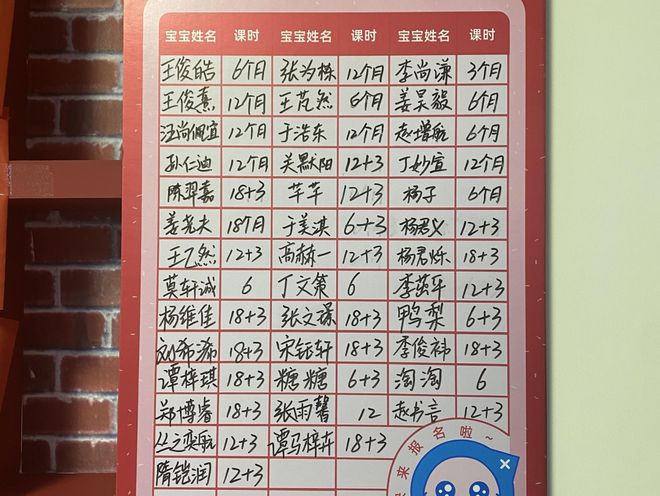 宝宝姓名 课时 宝宝姓名 课时 宝宝姓名 课时
王俊皓 6个月 张为栋 12个月 李尚谦 3个月
王俊熹 12个月 王芃然 6个月 姜昊毅 6个月
汪尚佩宜 12个月 于浩东 12个月 赵增航 6个月
孙仁迪 12个月 关默阳 12+3 丁妙宣 12个月
陈羿嘉 18+3 芊芊 12+3 杨子 6个月
姜尧夫 18个月 于美淇 6+3 杨君义 12+3
王乙然 12+3 高赫一 12+3 杨君烁 18+3
莫轩诚 6 丁文策 6 李茁年 12+3
杨维佳 18+3 张文璟 18+3 鸭梨 6+3
刘希浠 18+3 宋钰轩 18+3 李俊祎 18+3
谭梓琪 18+3 糖糖 6+3 淘淘 6
郑博睿 18+3 张雨馨 12 赵书言 12+3
丛之奕航 12+3 谭马梓卉 18+3
隋铠润 12+3
来报名啦~